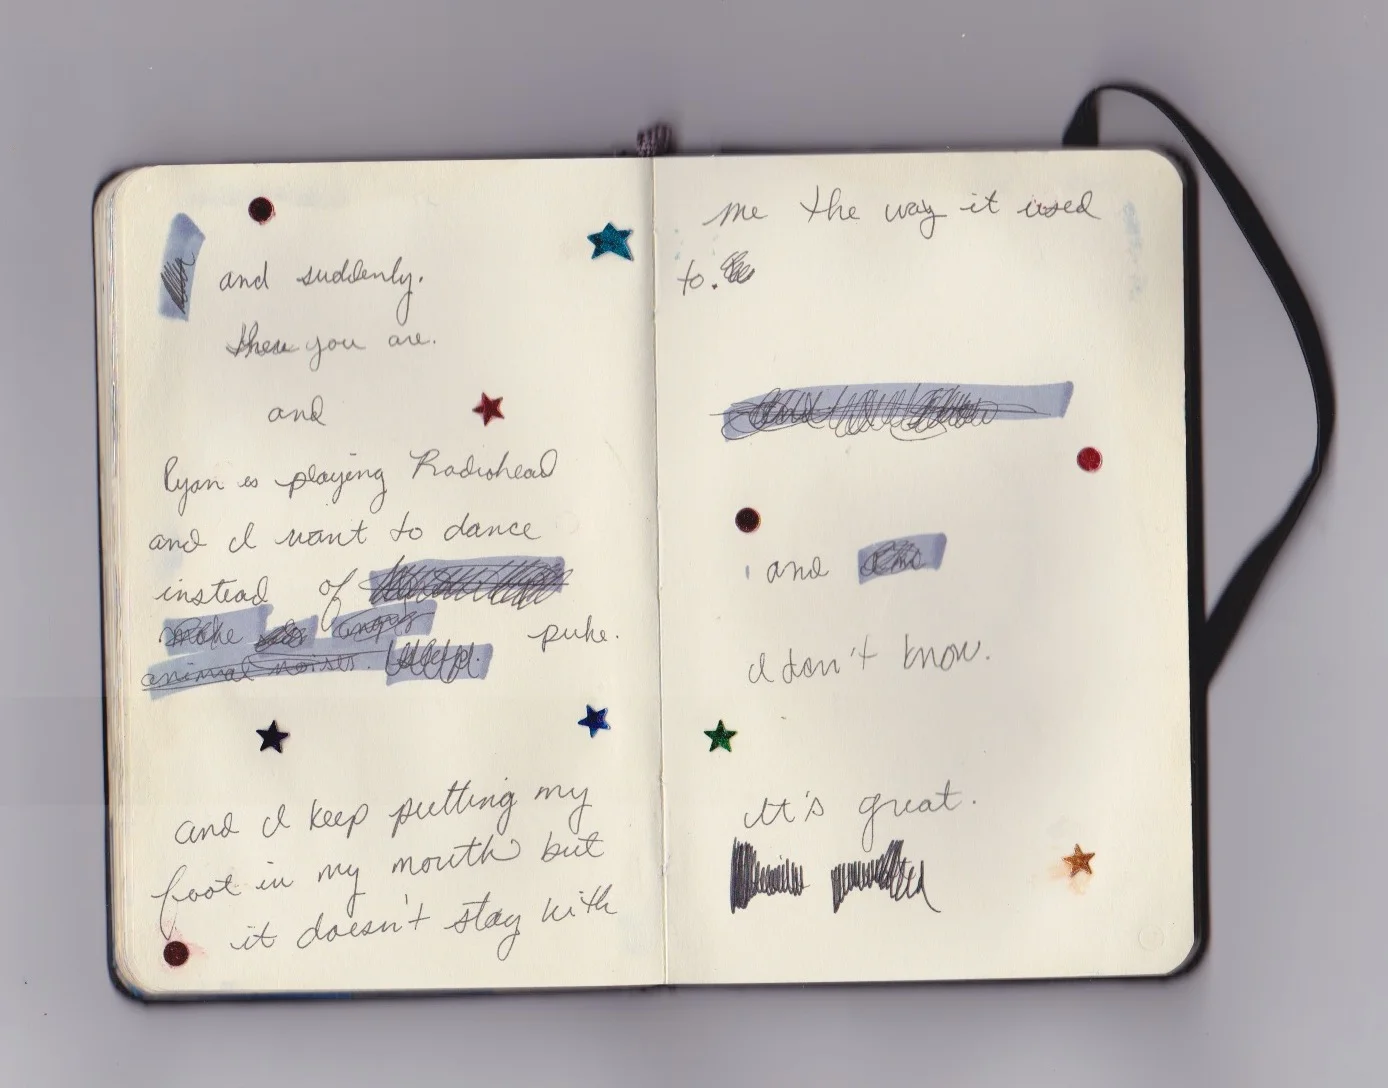 and suddenly.
then you are.
and
Ryan is playing Radiohead
and I want to dance
instead of
make puke.
animal noises.
and I keep putting my
foot in my mouth but
it doesn't stay with
me the way it used
to.
and
I don't know.
It's great.